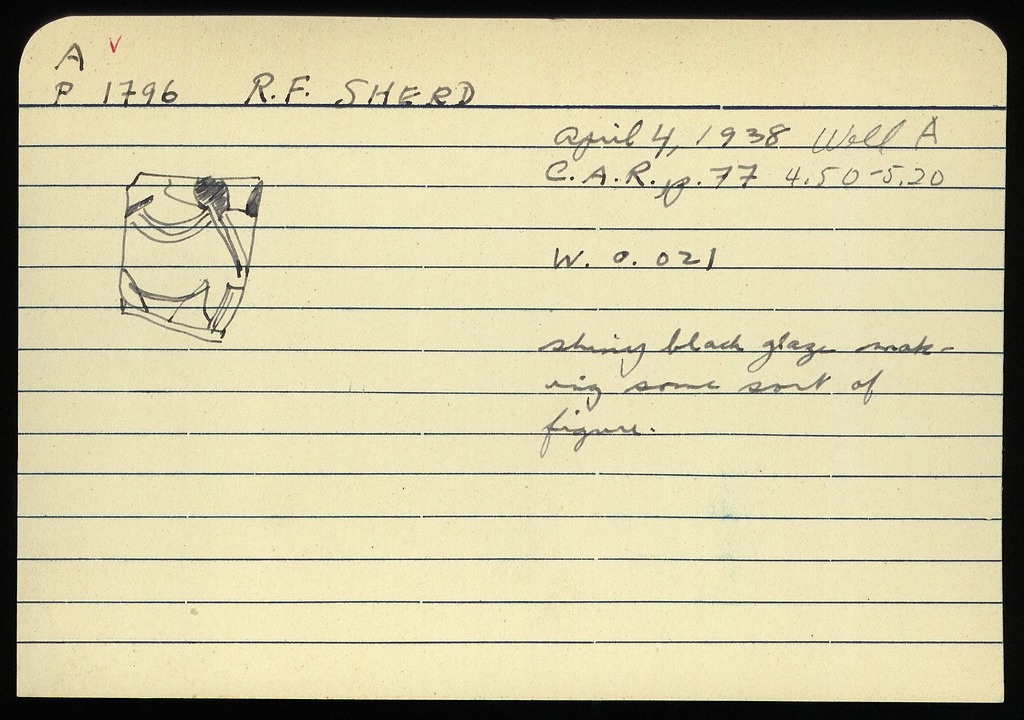 A v
P 1796 R.F. SHERD
April 4, 1938 Well A
C.A.R. p. 77 4.50-5.20
W. O. 021
shiny black glaze mak-
ing some sort of
figure.